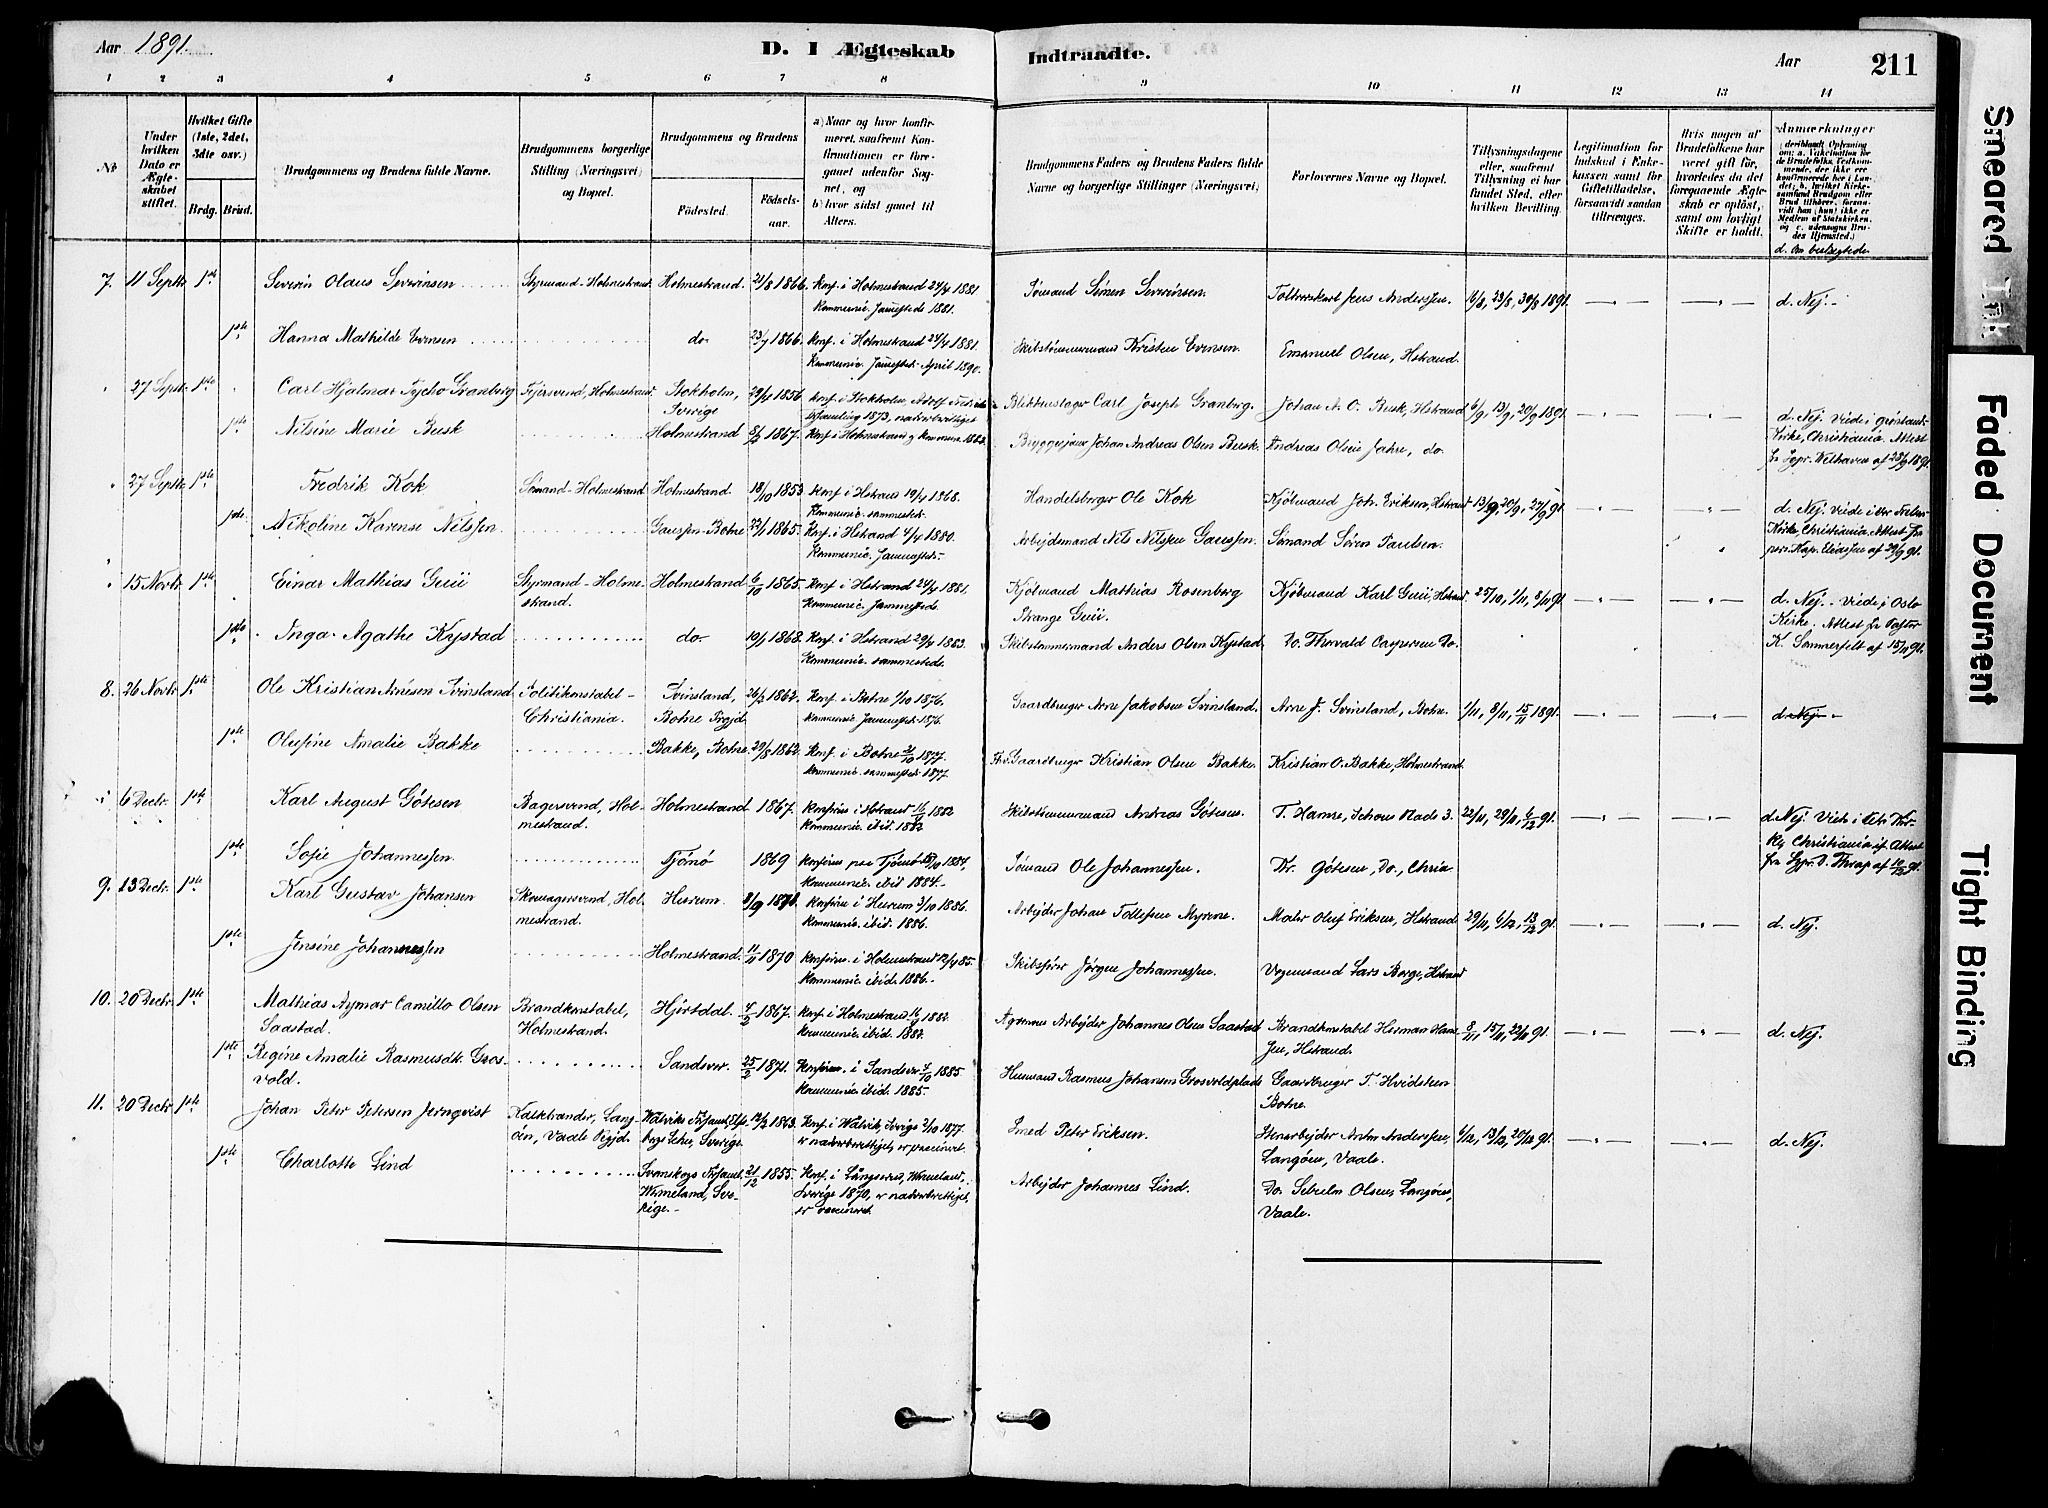 Aar 1891.
D. I Ægteskab Indtraadte.
Aar 211
1 2 3 4 5 6 7 8 9 10 11 12 13 14
No
Under hvilken Dato er Ægteskabet stiftet.
Hvilket Gifte (1ste, 2det, 3die osv.)
Brdg. Brud.
Brudgommens og Brudens fulde Navne.
Brudgommens borgerlige Stilling (Næringsvei) og Bopæl.
Brudgommens og Brudens
Fødested. Fødselsaar.
a) Naar og hvor konfirmeret, saafremt Konfirmationen er foregaaet udenfor Sognet, og
b) hvor sidst gaaet til Alters.
Brudgommens Faders og Brudens Faders fulde Navne og borgerlige Stillinger (Næringsvei).
Forlovernes Navne og Bopæl.
Tillysningsdagene eller, saafremt Tillysning ei har fundet Sted, efter hvilken Bevilling.
Legitimation for Indskud i Enkekassen samt for Giftetilladelse, forsaavidt saadan tiltrænges.
Hvis nogen af Brudefolkene har været gift før, hvorledes da det foregaaende Ægteskab er opløst, samt om lovligt Skifte er holdt.
Anmærkninger
d. Om beslægtede
7. 11 Septbr 1ste Severin Olaus Severinsen Styrmand - Holmestrand Holmestrand 21/8 1866 Konf. i Holmestrand 24/4 1881. Kommunic. sammesteds 1881. Sømand Simen Severinsen. Toldopsk. Jens Anderssen. 16/8, 23/8, 30/8 1891. d. Nej.
1ste Hanna Mathilde Evensen do 23/1 1866. Konf. i Holmestrand 24/4 1881. Kommunic. sammesteds April 1890. Skibstømmermand Kristen Evensen. Emanuel Olsen, Hstrand.
27 Septbr 1ste Carl Hjalmar Tycho Granberg Fejersvend, Holmestrand Stokholm, Sverige 29/4 1856 Konf. i Stokholm, Adolf Fredriks 1873, Blikkenslager Carl Joseph Granberg. Johan A. O. Busk, Hstrand 6/9, 13/9, 20/9 1891. d. Nej. Viede i Grønlands Kirke, Christiania. Attest fr Sgpr. Welhaven af 28/9 1891.
1ste Nilsine Marie Busk Holmestrand 8/2 1867. Konf. i Holmestrand og Kommun. 1882. Bryggesjouer Johan Andreas Olsen Busk. Andreas Olsen Jahre, do.
27 Septbr 1ste Fredrik Kok Sømand - Holmestrand Holmestrand. 18/10 1853 Konf. i Hstrand 19/4 1868. Kommunic. sammested. Handelsborger Ole Kok Kjøbmand Joh. Eriksen, Hstrand 13/9, 20/9, 27/9 91. d. Nej.
1ste Nikoline Karense Nilssen Gausen - Botne 22/1 1865. Konf. i Hstrand 4/4 1880. Kommunic. sammesteds. Arbejdsmand Nils Nilssen Gaussen. Sømand Søren Paulsen.
15 Novbr 1ste Einar Mathias Guii Styrmand - Holmestrand. Holmestrand 6/10 1865. Konf. i Hstrand 24/4 1881. Kommunic. sammesteds. Kjøbmand Mathias Rosenberg Strange Guii. Kjøbmand Karl Guii, Hstrand 25/10, 1/11, 8/11 91. d. Nej. - Viede i Oslo Kirke. Attest fr Pastor K. Sommerfelt af 15/11 91.
1ste Inga Agathe Kystad do 10/1 1868. Konf. i Hstrand 29/4 1883. Kommunic. sammesteds. Skibstømmermand Anders Olsen Kystad. Do. Thorvald Caspersen Do.
8. 26 Novbr 1ste Ole Kristian Arnesen Svinsland Politikonstabel - Christiania. Svinsland, Botne Prgjd. 26/2 1862. Konf. i Botne 1/10 1876. Kommunic. sammested 1876. Gaardbruger Arne Jakobsen Svinsland. Arne J. Svinsland, Botne. 1/11, 8/11, 15/11 1891. d. Nej.
1ste Olufine Amalie Bakke Bakke, Botne 29/8 1862. Konf. i Botne 21/10 1877. Kommunic. sammested. 1877. Fhv. Gaardbruger Kristian Olsen Bakke. Kristian O. Bakke, Holmestrand.
6 Decbr. 1ste Karl August Gøtesen Bagersvend, Holmestrand. Holmestrand 1867. Konfirm. i Hstrand 16/4 1882 Kommunic. ibid. 1882 Skibstømmermand Andreas Gøtesen. T. Hamre, Schous Gade 3. 22/11, 29/11, 6/12 91. d. Nej.
1ste Sofie Johannessen. Tjømø 1869 Konfirm. paa Tjømø 1884, Kommunic. ibid 1884. Sømand Ole Johannessen. Th. Gøtesen, Do., Chria.
9. 13 Decbr. 1ste Karl Gustav Johansen Skomagersvend, Holmestrand. Hurum. 8/9 1870. Konfirm. i Hurum 3/10 1886. Kommunic. ibid. 1886. Arbejder Johan Tollefsen Myrene. Maler Oluf Eriksen, Hstrand 29/11, 6/12, 13/12 91. d. Nej.
1ste Jensine Johannessen Holmestrand. 11/11 1870 Konfirm. i Holmestrand 12/4 85. Kommunic. ibid. 1886. Skibsfører Jørgen Johannessen. Vognmand Lars Borge, Hstrand
10. 20 Decbr. 1ste Mathias Aymar Camillo Olsen Saastad. Brandkonstabel, Holmestrand. Hjertdal. 4/2 1867. Konf. i Holmestrand 16/4 1882. Kommunic. ibid. 1882. Arbejder Johannes Olsen Saastad Brandkonstabel Herman Hansen, Hstrand. 8/11, 15/11, 22/11 91. d. Nej.
1ste Regine Amalie Rasmusdt. Grosvold. Sandsvær. 25/2 1871. Konfirm. i Sandsvær 4/10 1885. Kommunic. ibid. 1885. Husmand Rasmus Johansen Grosvoldplads Gaardbruger T. Hvidsteen Botne.
11. 20 Decbr. 1ste Johan Peter Petersen Jernqvist Kalkbrænder, Langøen, Vaale Prgjd. 12/2 1863. Konf. i Walvik, Sverige 2/10 1877. er naturbrettiget, er vaccineret. Smed Peter Eriksen. Stenarbejder Anton Anderssen, Langøen, Vaale. 6/12, 13/12, 20/12 91. d. Nej.
1ste Charlotte Lind Svanskogs Forsaml. Wermeland, Sverige. 21/12 1855. Konf. i Långserud, Wermeland, Sverige 1870, er naturbrettiget, er vaccineret. Arbejder Johannes Lind. Do. Olsen, Langøen, Vaale.
Smeared Txt.
Faded Document
Tight Binding